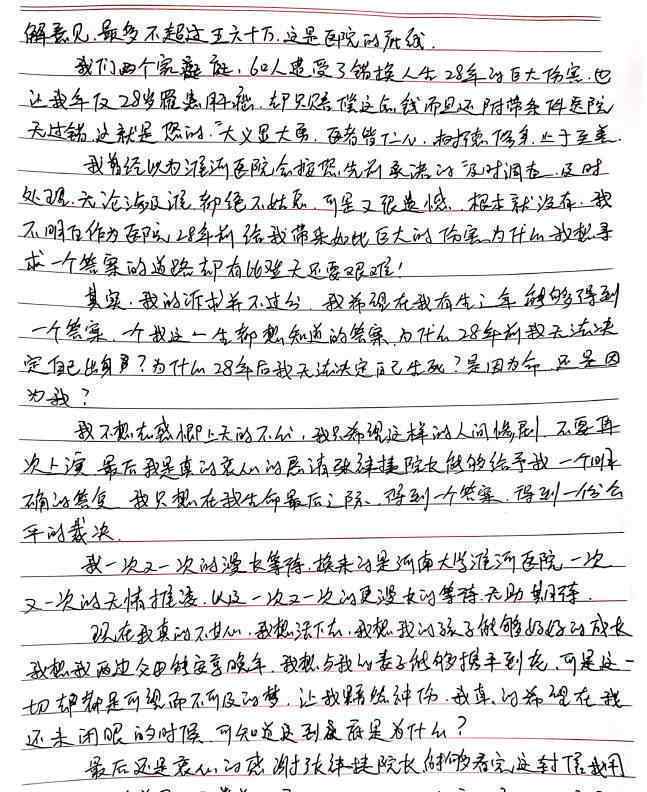 解意见，最多不超过五六十万，这是医院的底线。
我们两个家庭，6口人遭受了错换人生28年的巨大伤害，也
让我年仅28岁罹患肝癌，却只赔偿这点钱而且还附带条件医院
无过错，这就是您的"大义显大勇，医者皆仁心
我曾经以为淮河医院会按您先前承诺的"及时调查，及时
处理，无论涉及谁，都绝不姑息，可是又很遗憾，根本就没有，我
不明白作为医院，28年前给我带来如此巨大的伤害，为什么我想寻
求一个答案的道路却有比登天还要艰难！
其实，我的诉求并不过分，我希望在我有生之年能够得到
一个答案，一个我这一生都想知道的答案，为什么28年前我无法决
定自己出身？为什么28年后我无法决定自己生死？是因为命还是因
为我？
我不想去感慨上天的不公，我只希望这样的人间惨剧，不要再
次上演，最后我是真的衷心的恳请张律捷院长能够给予我一个明
确的答复，我只想在我生命最后之际，得到一个答案，得到一份公
平的裁决。
我一次又一次的漫长等待，换来的是河南大学淮河医院一次
又一次的无情推诿，以及一次又一次的更漫长的等待，无助期待。
现在我真的不甘心，我想活下去，我想我的孩子能够好好的成长
我想我两边父母能安享晚年，我想与我的妻子能够携手到老，可是这一
切却都是可望而不可及的梦，让我黯然神伤，我真的希望在我
还未闭眼的时候，可知道这到底是为什么？
最后还是衷心的感谢张律捷院长能够看完这封信我用